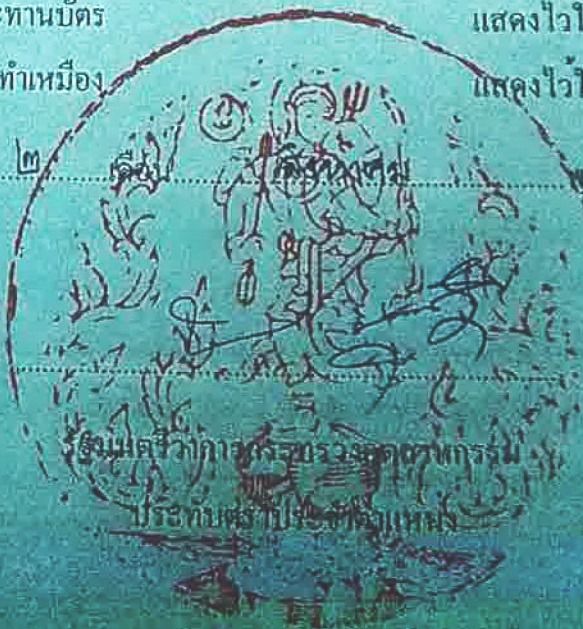 ะทานบัตร แสดงไว้ใ
ทำเหมือง แสดงไว้ใ
๒ เดือน สิงหาคม
รัฐมนตรีว่าการกระทรวงอุตสาหกรรม
ประทับตราประจำตำแหน่ง